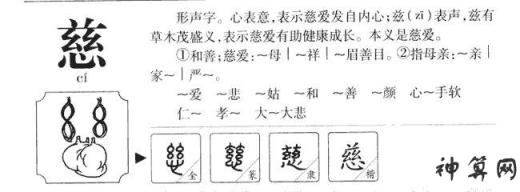 慈
cí
形声字。心表意,表示慈爱发自内心;兹(zī)表声,兹有
草木茂盛义,表示慈爱有助健康成长。本义是慈爱。
①和善;慈爱:~母|~祥|~眉善目。②指母亲:~亲|
家~|严~。
~爱 ~悲 ~姑 ~和 ~善 ~颜 心~手软
仁~ 孝~ 大~大悲
慈 金 慈 篆 慈 隶 慈 楷
神算网